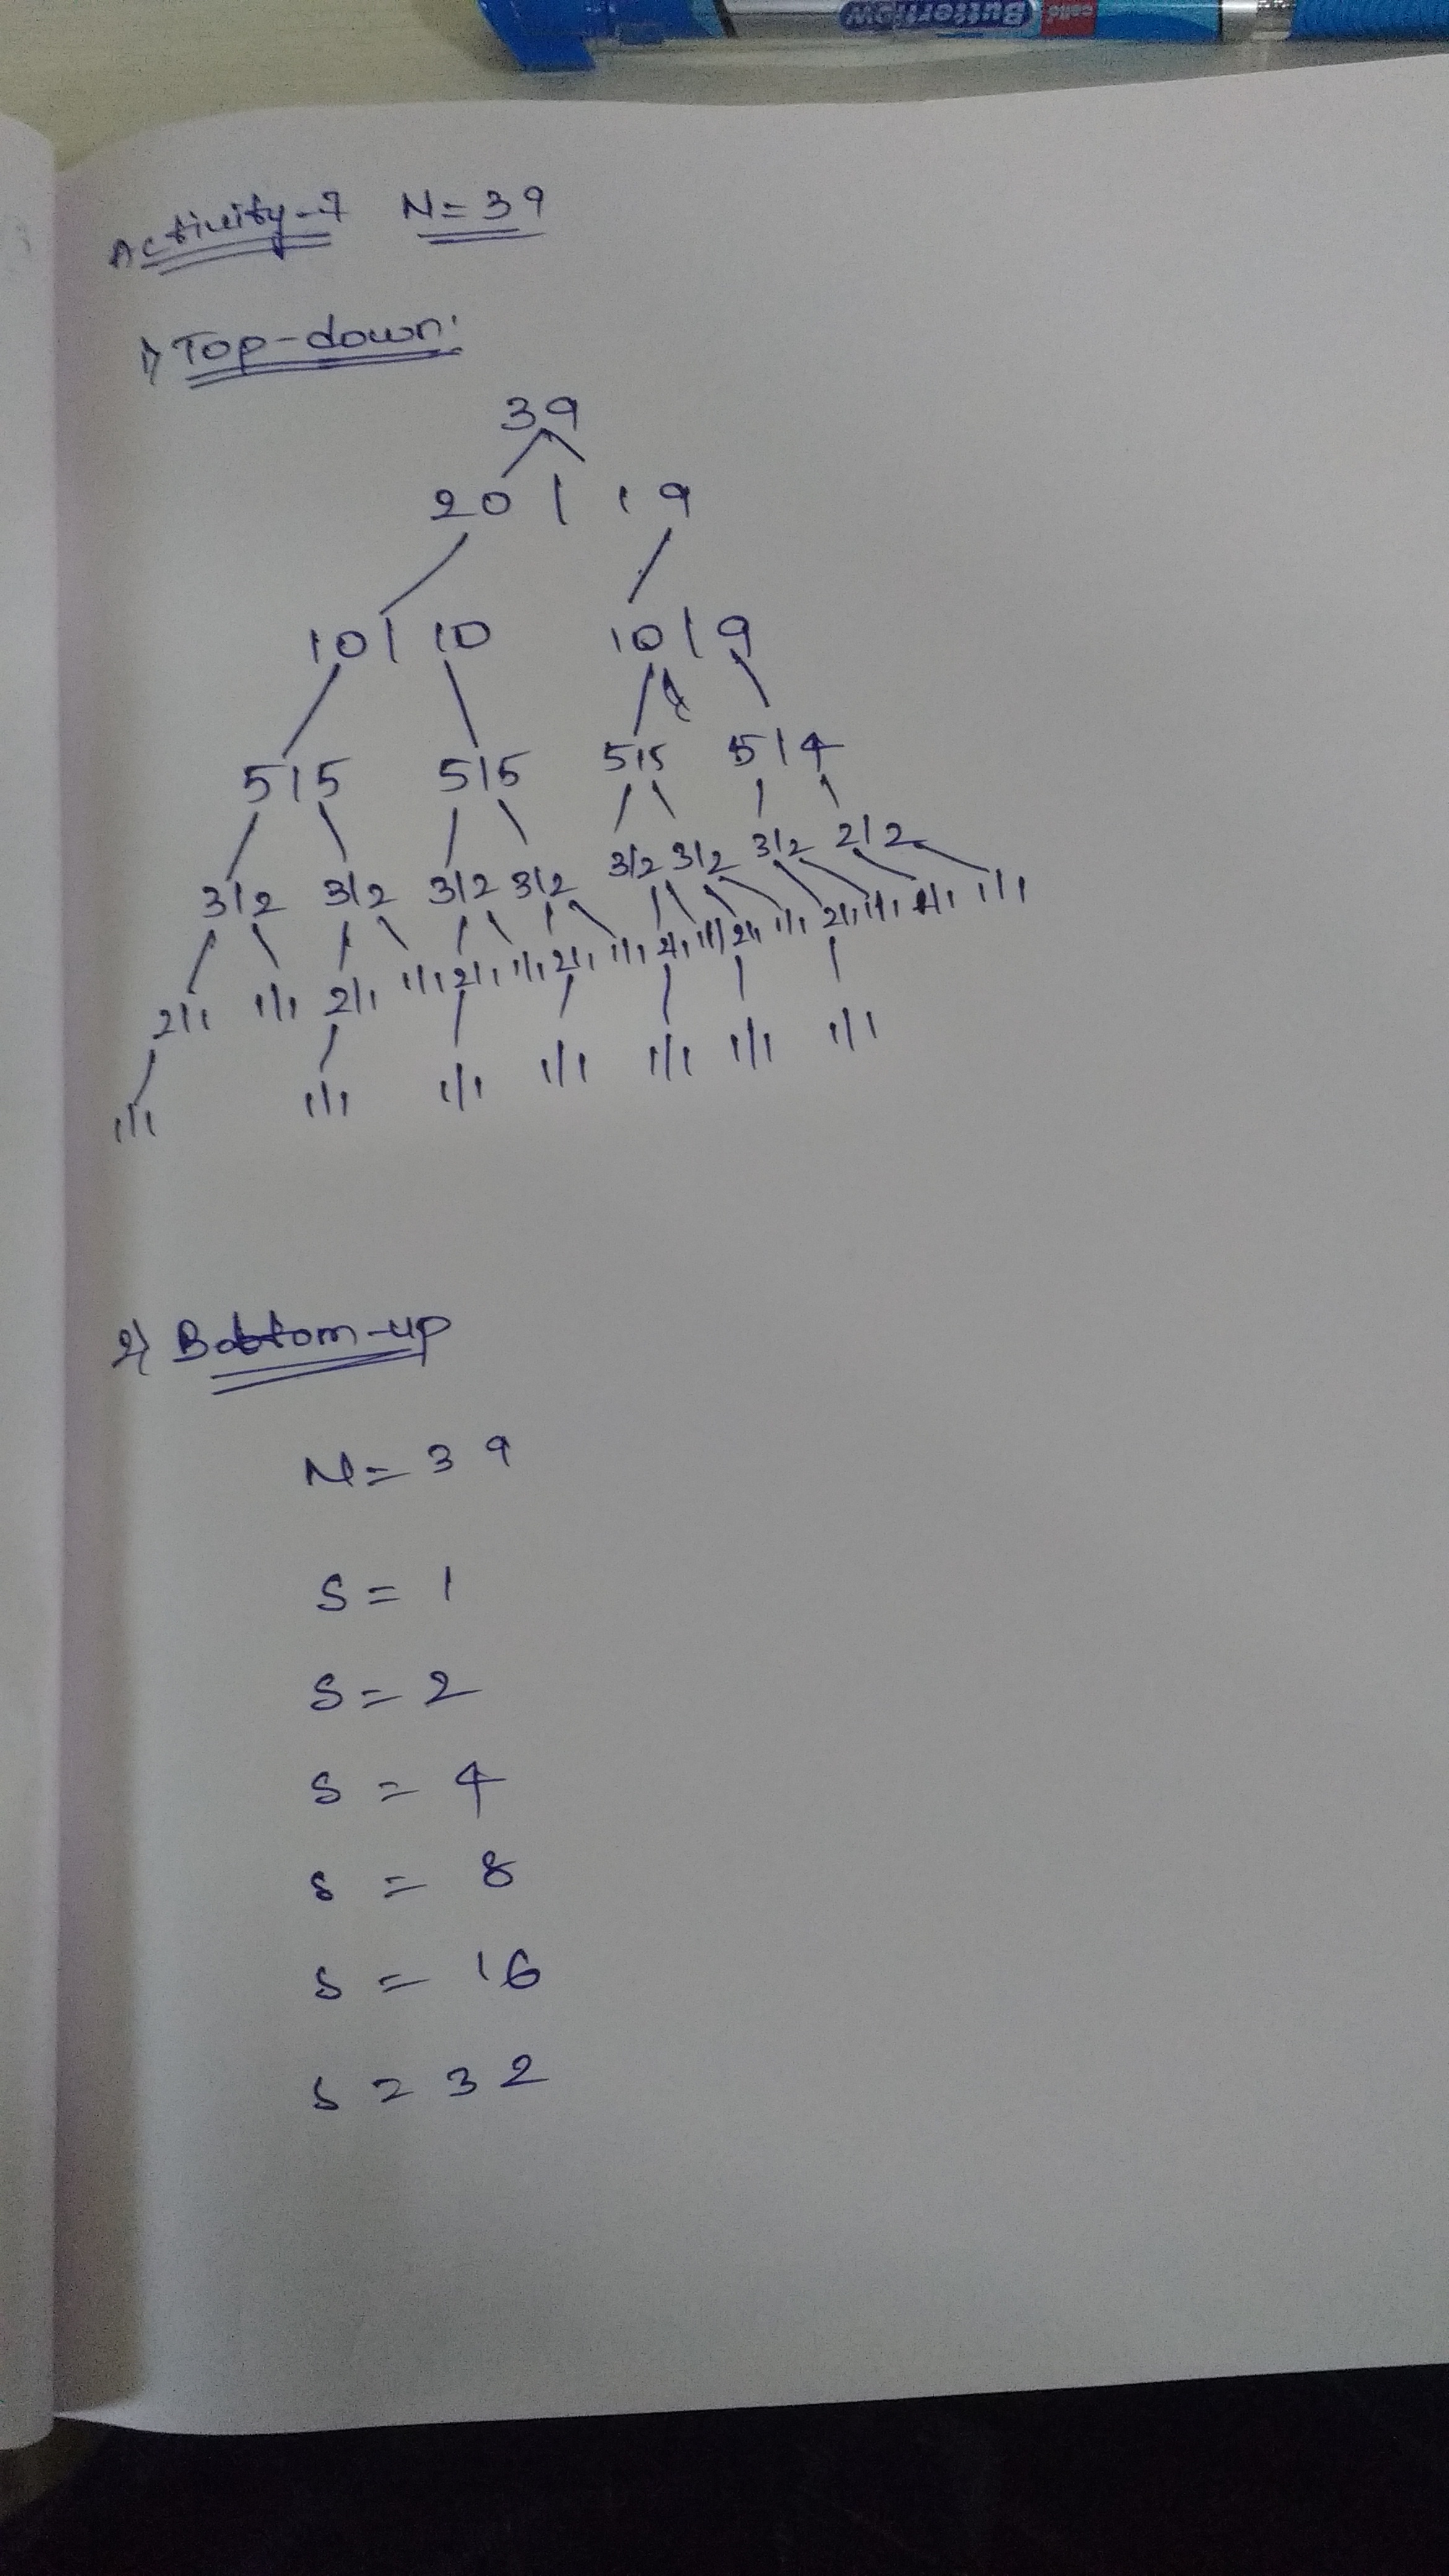 cello Butterflow
Activity-7 N=39
1) Top-down:
39
20 | 19
10|10 10|9
5|5 5|5 5|5 5|4
3|2 3|2 3|2 3|2 3|2 3|2 3|2 2|2
2|1 1|1 2|1 1|1 2|1 1|1 2|1 1|1 2|1 1|1 2|1 1|1 2|1 1|1 1|1 1|1
1|1 1|1 1|1 1|1 1|1 1|1 1|1
2) Bottom-up
N=39
S=1
S=2
S=4
S=8
S=16
S=32